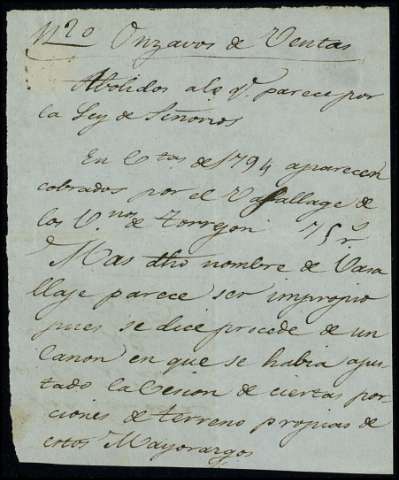 Nº 20 Onzavos de Ventas
Abolidos al q.e parece por
la Ley de Señorios
En Ctas. de 1794 aparecen
cobrados por el Vasallage de
los V.nos de Torrejon 75 r.s
Mas dho nombre de Vasa
llaje parece ser impropio
pues se dice procede de un
Canon en que se habia ajus
tado la Cesion de ciertas por
ciones de terreno propias de
estos Mayorazgos